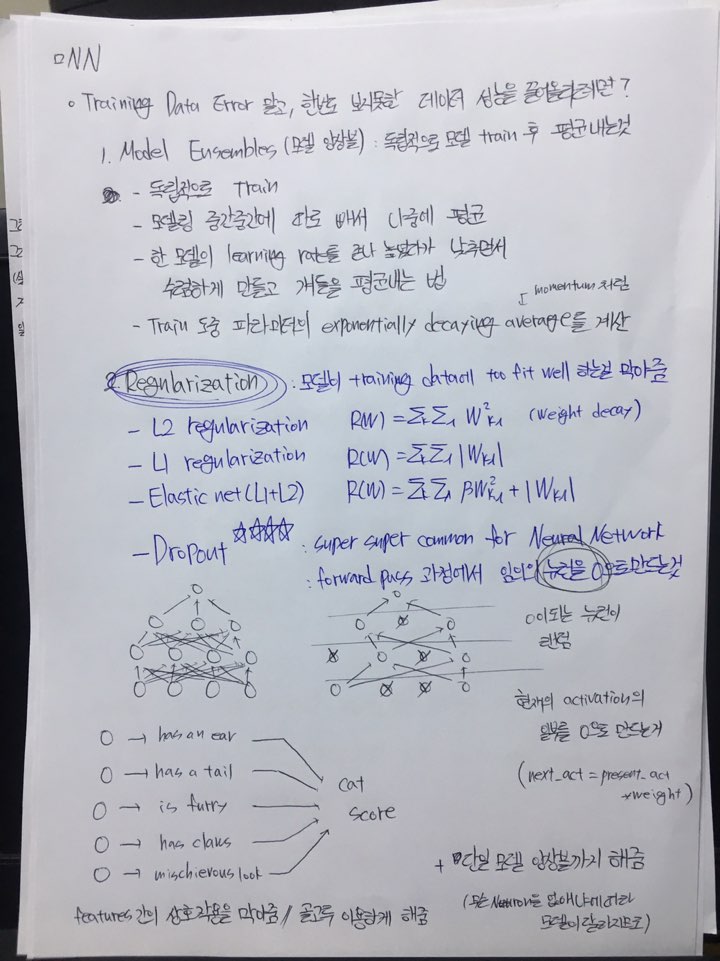 □NN
○ Training Data Error 말고, 한번도 보지못한 데이터 성능을 끌어올리려면?
1. Model Ensembles (모델 앙상블) : 독립적으로 모델 train 후 평균내는것
- 독립적으로 Train
- 모델링 중간중간에 따로 빼서 나중에 평균
- 한 모델이 learning rate를 겁나 높였다가 낮추면서
수렴하게 만들고 걔들을 평균내는 법
momentum 처럼
- Train 도중 파라미터의 exponentially decaying average를 계산
2. Regularization : 모델이 training data에 too fit well 하는걸 막아줌
- L2 regularization R(W) = ΣkΣl W²k,l (weight decay)
- L1 regularization R(W) = ΣkΣl |Wk,l|
- Elastic net (L1+L2) R(W) = ΣkΣl βW²k,l + |Wk,l|
- Dropout ☆☆☆☆ : super super common for Neural Network
: forward pass 과정에서 임의의 뉴런을 0으로 만드는것
0이되는 뉴런이
랜덤
현재의 activation의
일부를 0으로 만드는거
(next_act = present_act
*weight)
○ → has an ear
○ → has a tail
○ → is furry
○ → has claws
○ → mischievous look
cat
score
+ 단일 모델 앙상블까지 해줌
모델이 달라지므로)
features간의 상호작용을 막아줌 / 골고루 이용하게 해줌